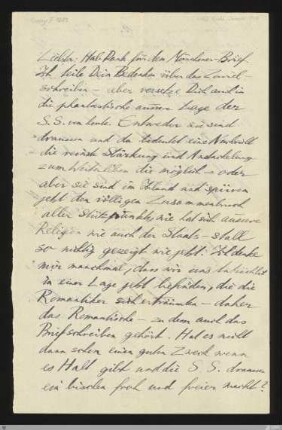 Lieber. Hab Dank für den Münchner-Brief.
Ich teile Dein Bedenken über das Zuviel-
schreiben – aber versetze Dich auch in
die phantastische Lage der
S.S. von heute. Entweder sie sind
draussen und da bedeutet eine Nachricht
die Stärkung und
die möglich – oder
aber sie sind im und spüren
jetzt den völligen Zusammenbruch
aller Stützpunkte, wie hat sich unsere
Religion wie auch der Staats-
so nichtig gezeigt wie jetzt. Ich denke
mir manchmal, dass wir uns tatsächlich
in einer Lage jetzt befinden, die die
Romantiker sich erträumten – daher
das Romantische – zu dem auch das
Briefschreiben gehört. Hat es nicht
dann schon einen guten Zweck wenn
es Halt gibt und die S.S. draussen
ein bischen froh und freier macht?